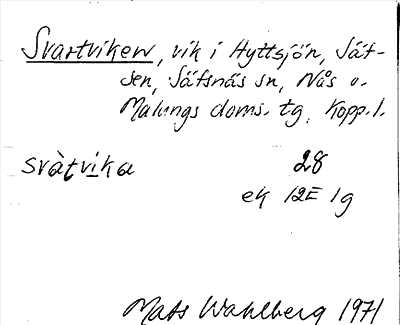 Svartviken, vik i Hyttsjön, Sät-
sen, Säfsnäs sn, Nås o.
Malungs doms. tg, Kopp. l.
svàtvika 28
ek 12E 1g
Mats Wahlberg 1971